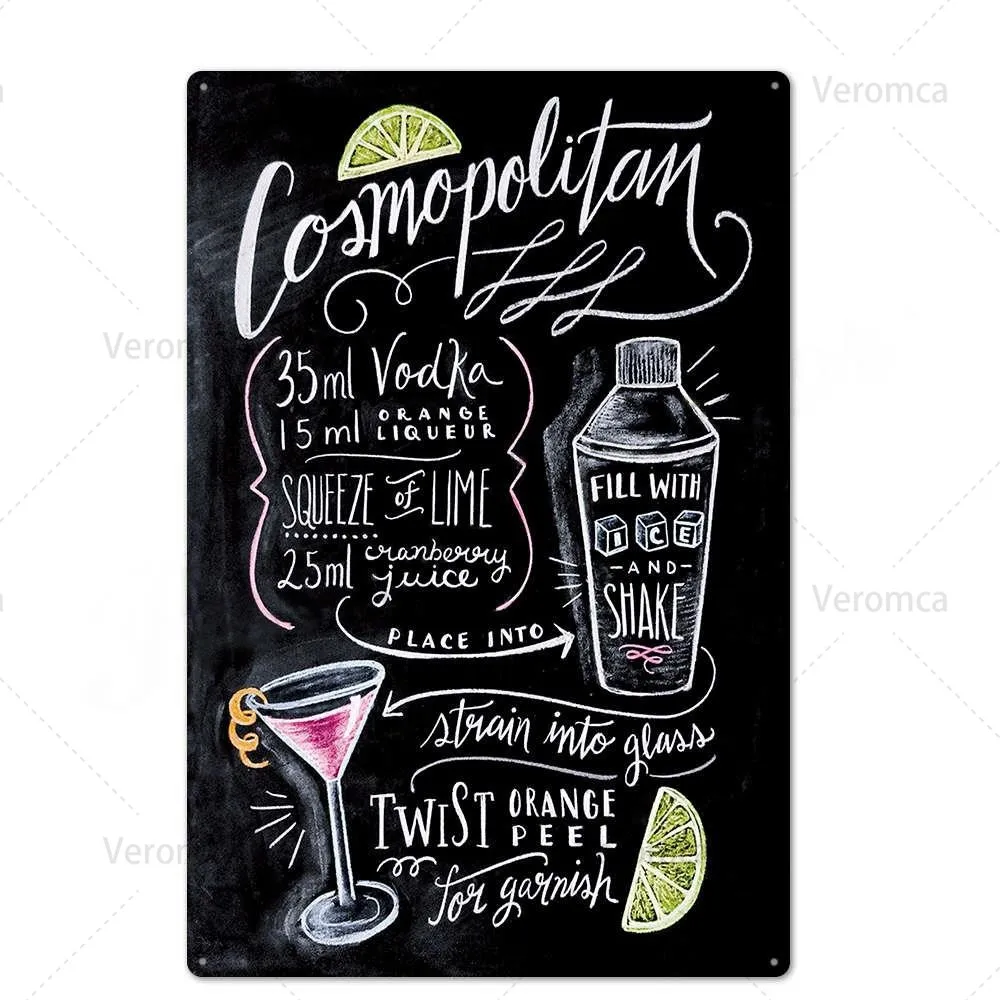 Veromca
Cosmopolitan
35ml Vodka
15ml ORANGE
LIQUEUR
SQUEEZE of LIME
25ml cranberry
juice
PLACE INTO
FILL WITH
ICE
-AND-
SHAKE
strain into glass
TWIST ORANGE
PEEL
for garnish
Verom
Veromca
Verom
Veromca